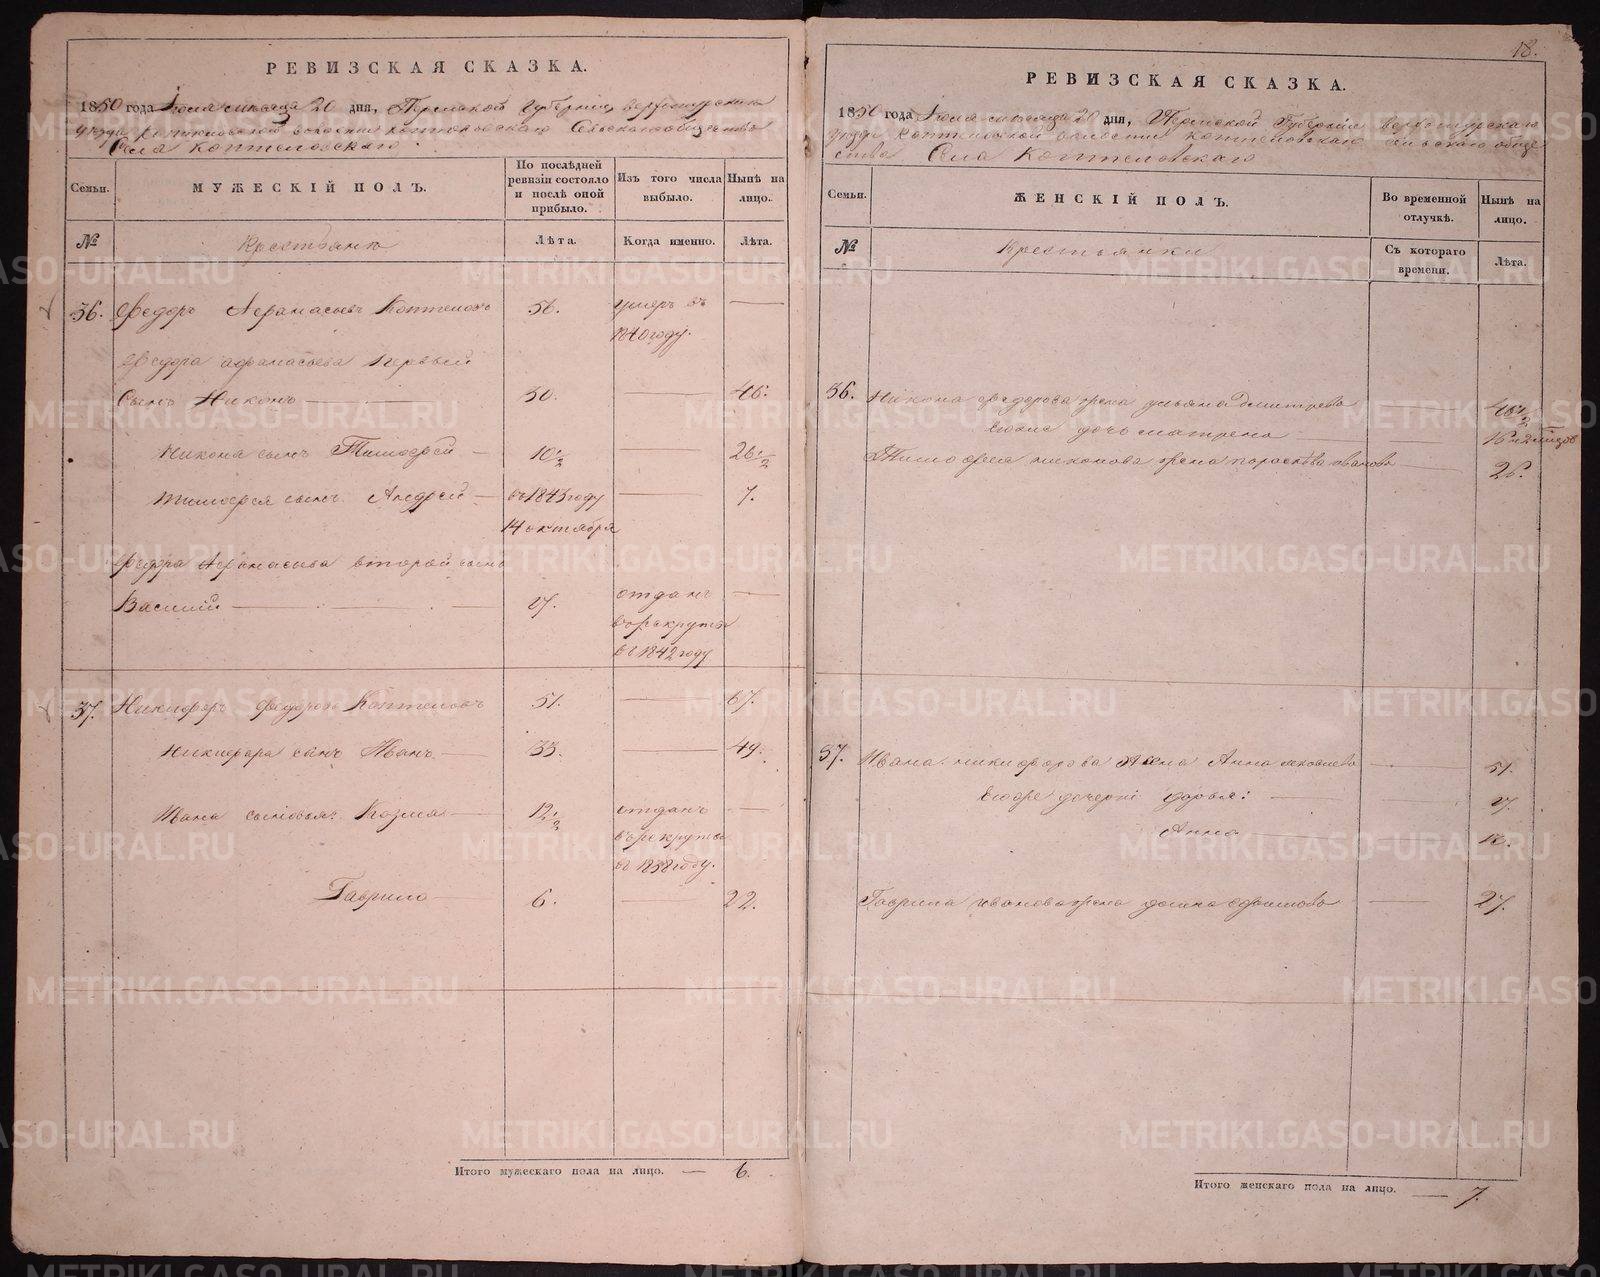 РЕВИЗСКАЯ СКАЗКА.
1850 года Июля месяца 20 дня, Пермской Губернии, верхотурскаго
уезда коптеловской волости коптеловскаго Сельскаго общества
Села коптеловскаго
Семьи. МУЖЕСКІЙ ПОЛЪ. По послѣдней ревизіи состояло и послѣ оной прибыло. Изъ того числа выбыло. Нынѣ на лицо.
№ Крестьяне Лѣта. Когда именно. Лѣта.
36. Федоръ Афанасьевъ Коптеловъ 56. умеръ въ —
1840 году.
Федора афанасьева первый
Сынъ Никонъ — 30. — 46.
Никона сынъ Тимофей — 10 1/2 — 26 1/2
Тимофея сынъ Андрей — въ 1843 году — 7.
14 октября
Федора Афанасьева второй сынъ
Василий — 17. отданъ —
в рекруты
въ 1842 году
37. Никифоръ федоровъ Коптеловъ 51. — 67.
Никифора сынъ Иванъ — 33. — 49.
Ивана сыновья: Козма — 12 1/2 отданъ —
в рекруты
въ 1838 году.
Гаврило — 6. — 22.
Итого мужескаго пола на лицо. — 6.
18.
РЕВИЗСКАЯ СКАЗКА.
1850 года Июля месяца 20 дня, Пермской Губернии верхотурскаго
уезда коптеловской волости коптеловскаго сельскаго обще
ства Села Коптеловскаго
Семьи. ЖЕНСКІЙ ПОЛЪ. Во временной отлучкѣ. Нынѣ на лицо.
№ Крестьянки Съ котораго времени. Лѣта.
36. Никона федорова жена ульяна Дмитрева — 46 1/2
Его дочь матрена — 16
Тимофея никонова жена параскева иванова — 26.
37. Ивана никифорова жена Анна — 51.
Его дочери дарья: — 17.
Анна —
Гаврила иванова жена — 27.
Итого женскаго пола на лицо. — 7.
METRIKI.GASO-URAL.RU